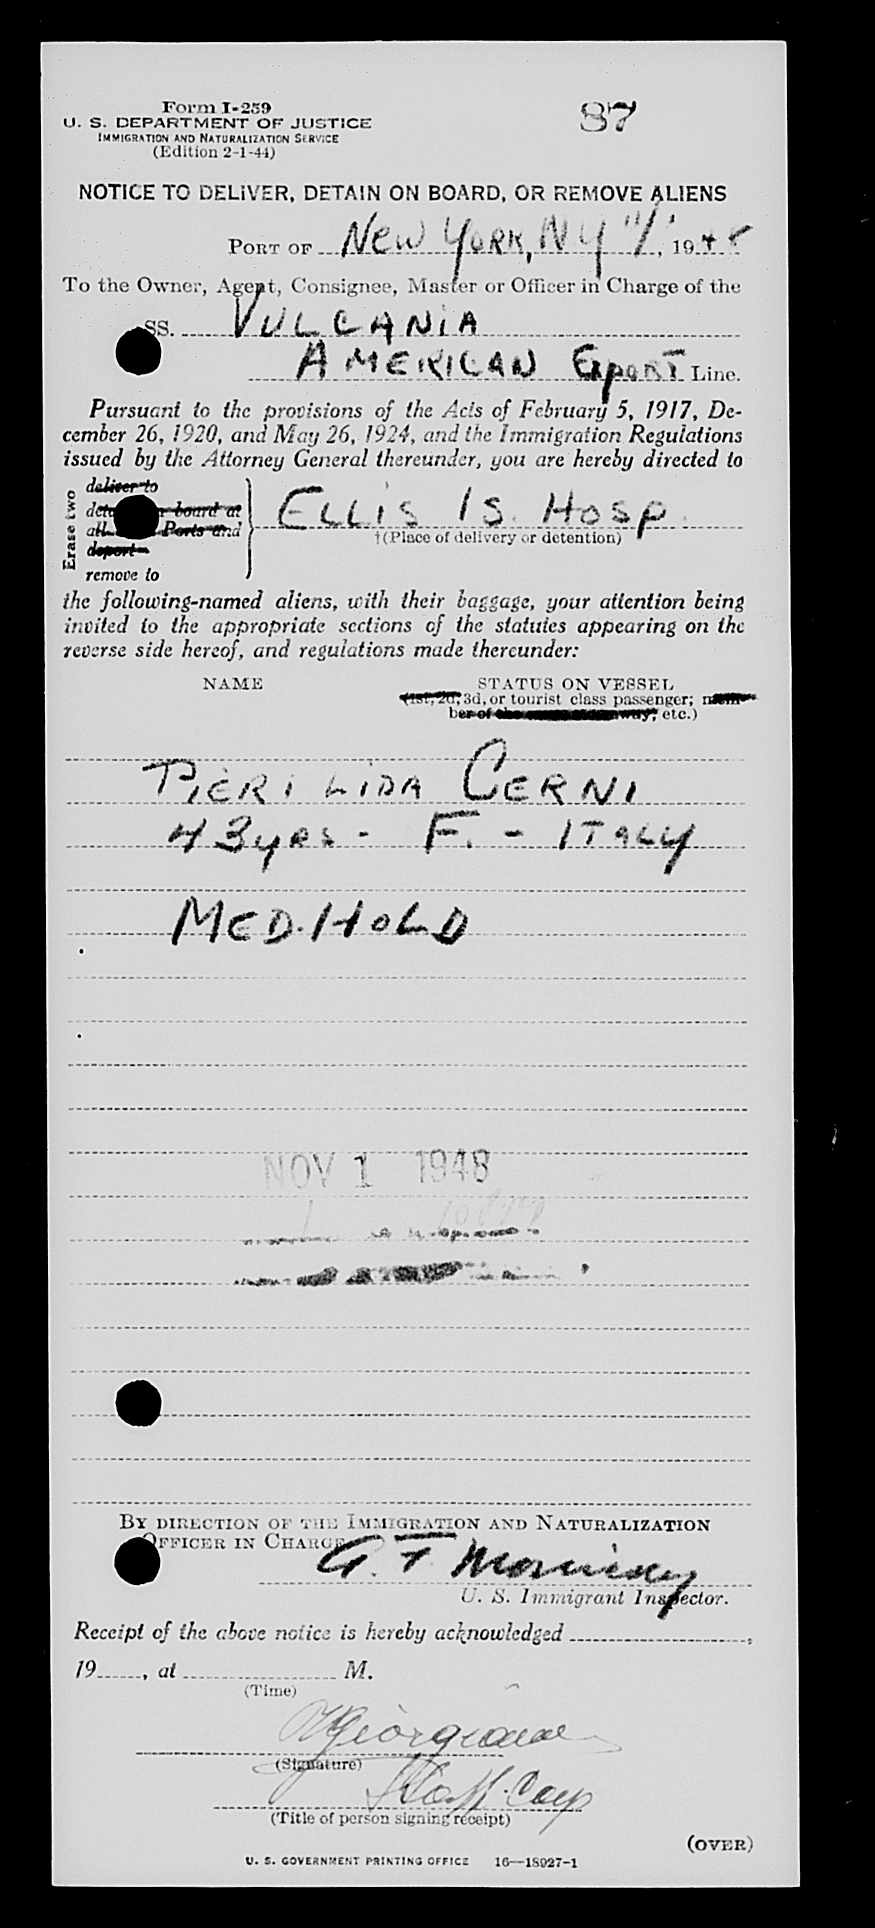 Form I-259
87
U. S. DEPARTMENT OF JUSTICE
IMMIGRATION AND NATURALIZATION SERVICE
(Edition 2-1-44)
NOTICE TO DELIVER, DETAIN ON BOARD, OR REMOVE ALIENS
PORT OF New York, NY 11/1, 1948
To the Owner, Agent, Consignee, Master or Officer in Charge of the
SS. VULCANIA
AMERICAN Export Line.
Pursuant to the provisions of the Acts of February 5, 1917, De-
cember 26, 1920, and May 26, 1924, and the Immigration Regulations
issued by the Attorney General thereunder, you are hereby directed to
Erase two
deliver to
board at
Ports and
deport
remove to
ELLIS IS. HOSP.
†(Place of delivery or detention)
the following-named aliens, with their baggage, your attention being
invited to the appropriate sections of the statutes appearing on the
reverse side hereof, and regulations made thereunder:
NAME
STATUS ON VESSEL
(1st, 2d, 3d, or tourist class passenger; mem-
ber of the etc.)
PIERI LIDA CERNI
43 yrs - F. - ITALY
MED. HOLD
NOV 1 1948
BY DIRECTION OF THE IMMIGRATION AND NATURALIZATION
OFFICER IN CHARGE
U. S. Immigrant Inspector.
Receipt of the above notice is hereby acknowledged
19 , at M.
(Time)
(Signature)
(Title of person signing receipt)
(OVER)
U. S. GOVERNMENT PRINTING OFFICE 16—18927-1